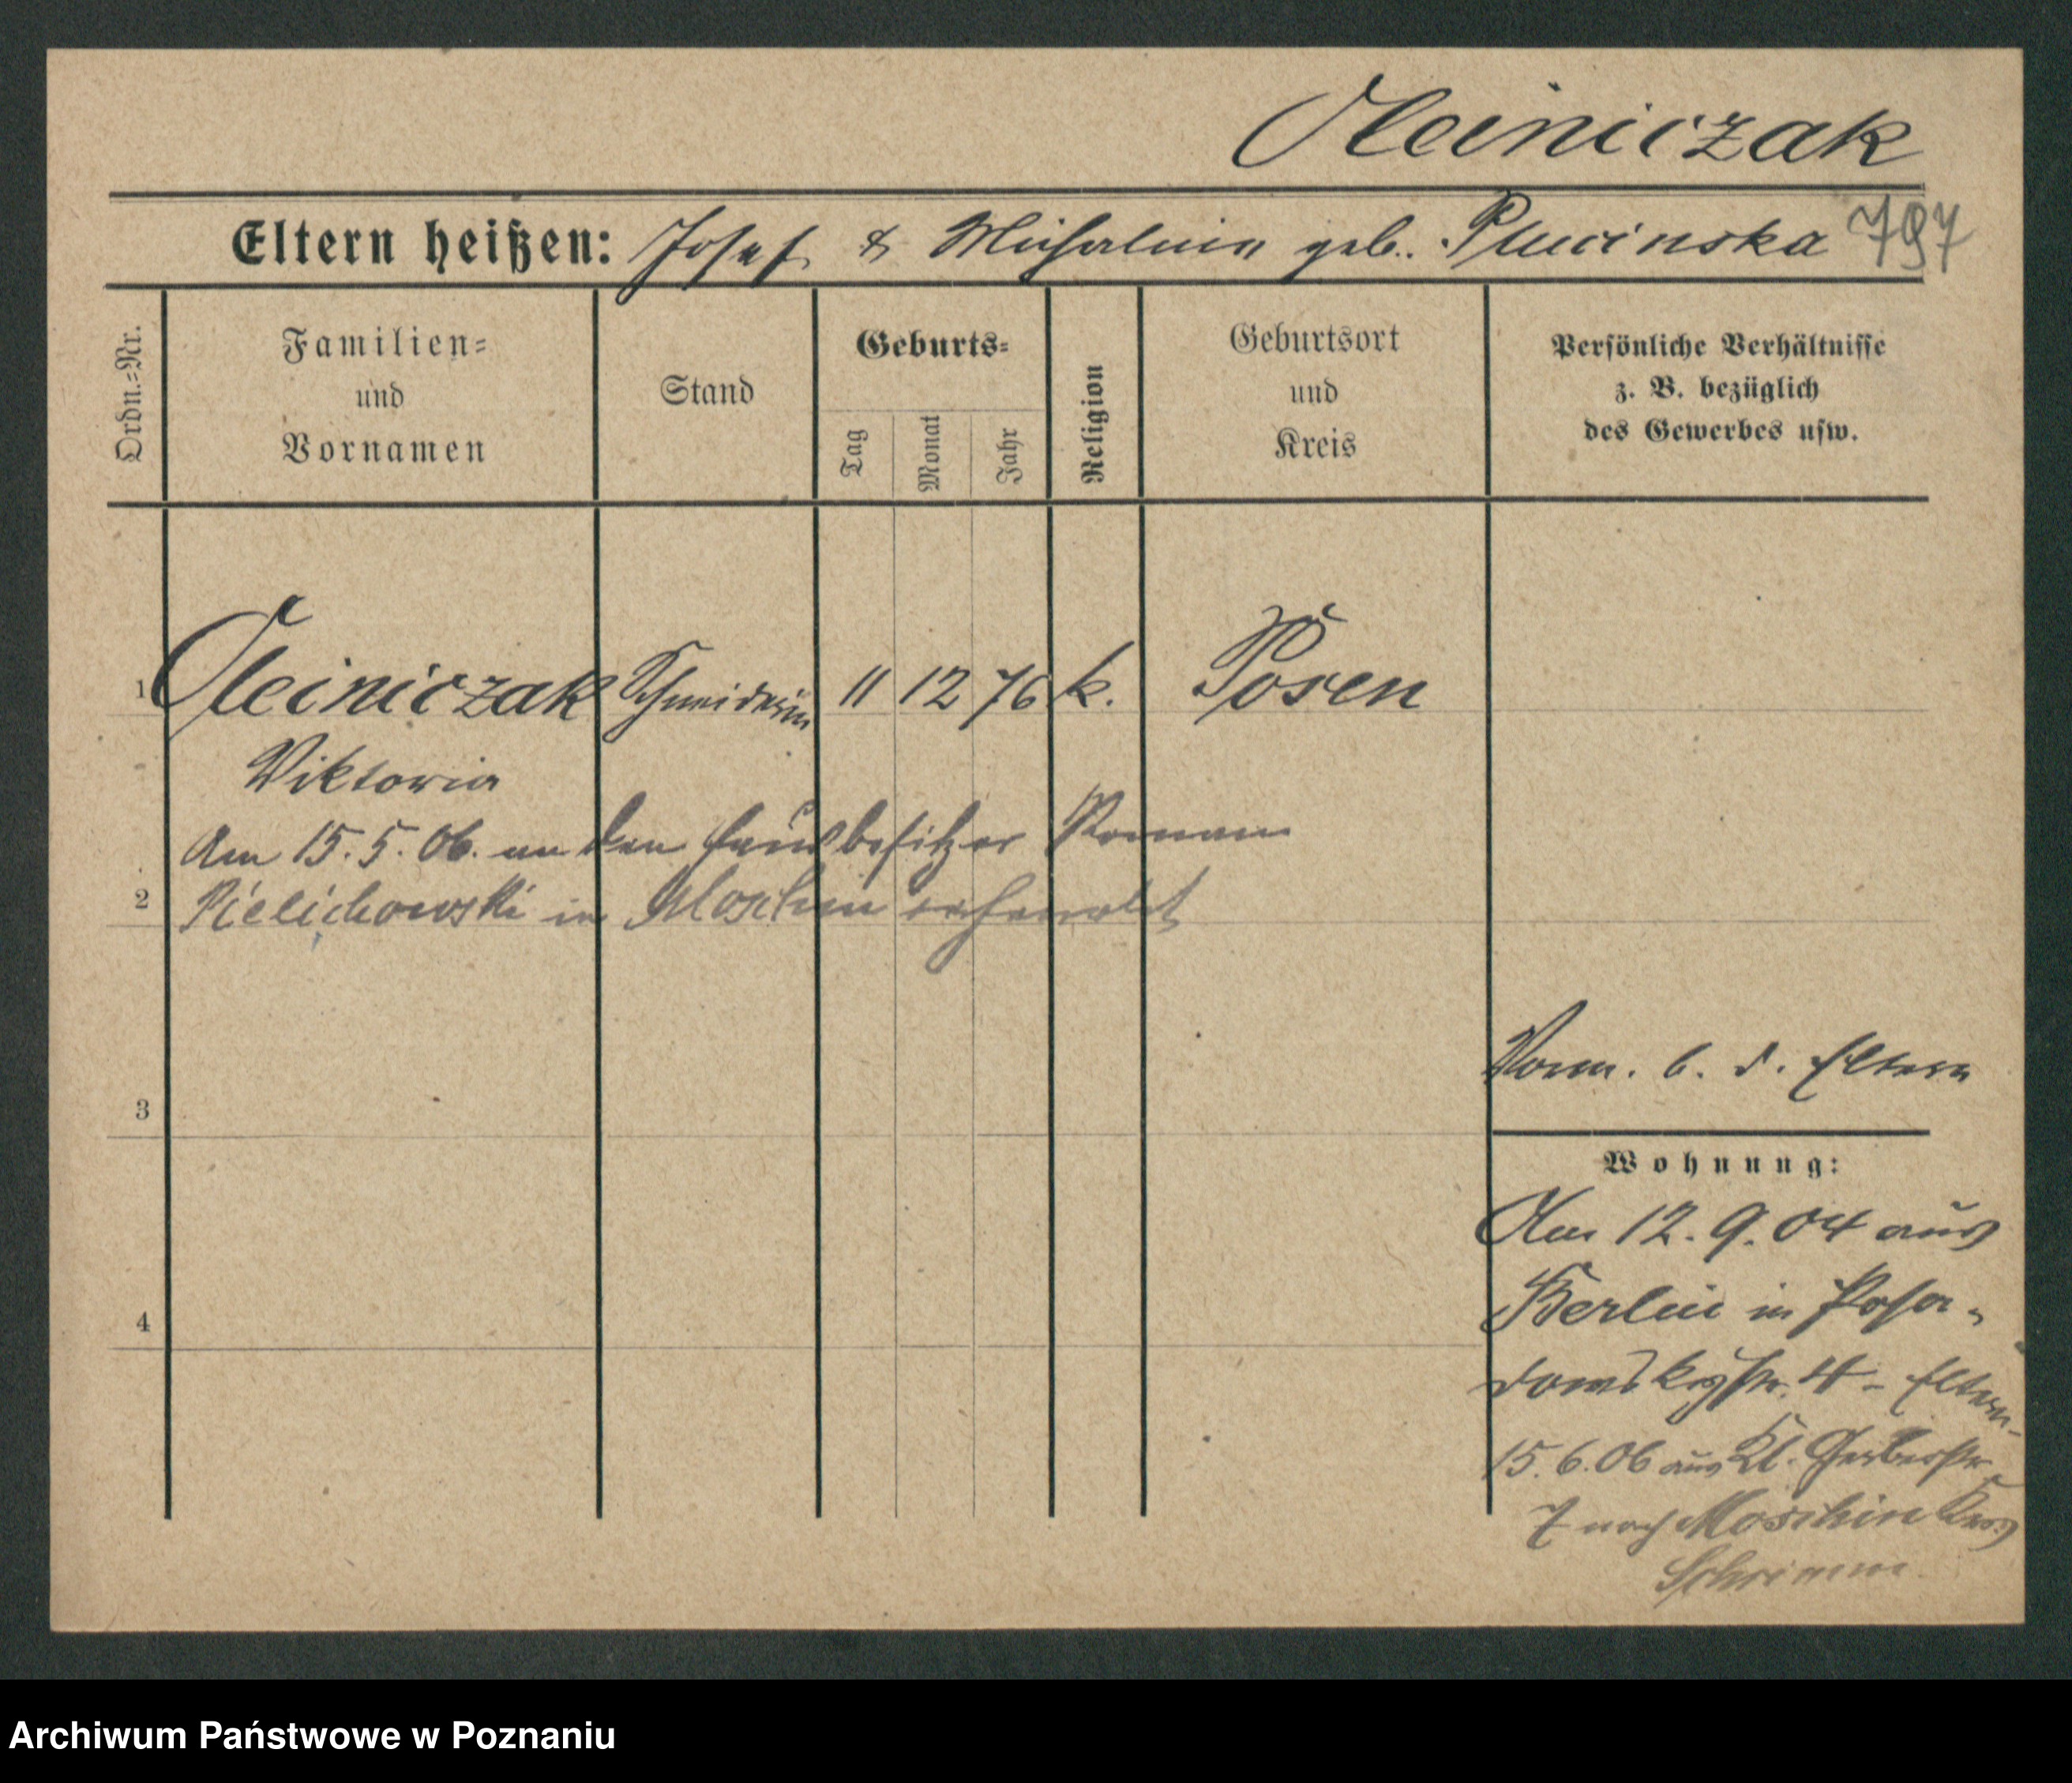 Oleiniczak
Eltern heißen: Josef & Michalina geb. Plucinska 797
Ordn.=Nr.
Familien=
und
Vornamen
Stand
Geburts=
Tag
Monat
Jahr
Religion
Geburtsort
und
Kreis
Persönliche Verhältnisse
z. B. bezüglich
des Gewerbes usw.
1 Oleiniczak Schneiderin 11 12 76 k. Posen
Viktoria
Am 15.5.06. an den Hausbesitzer Roman
2 Pielichowski in Moschin verheiratet
Vorm. b. d. Eltern
3
Wohnung:
Am 12.9.04 aus
Berlin in Posa-
4
dowskystr. 4 - Eltern-
15.6.06 aus Kl. Gerberstr
7 nach Moschin Kreis
Schrimm
Archiwum Państwowe w Poznaniu